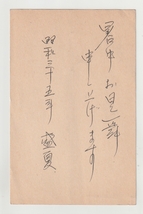 暑中お見舞
申し上げます
昭和三十五年 盛夏